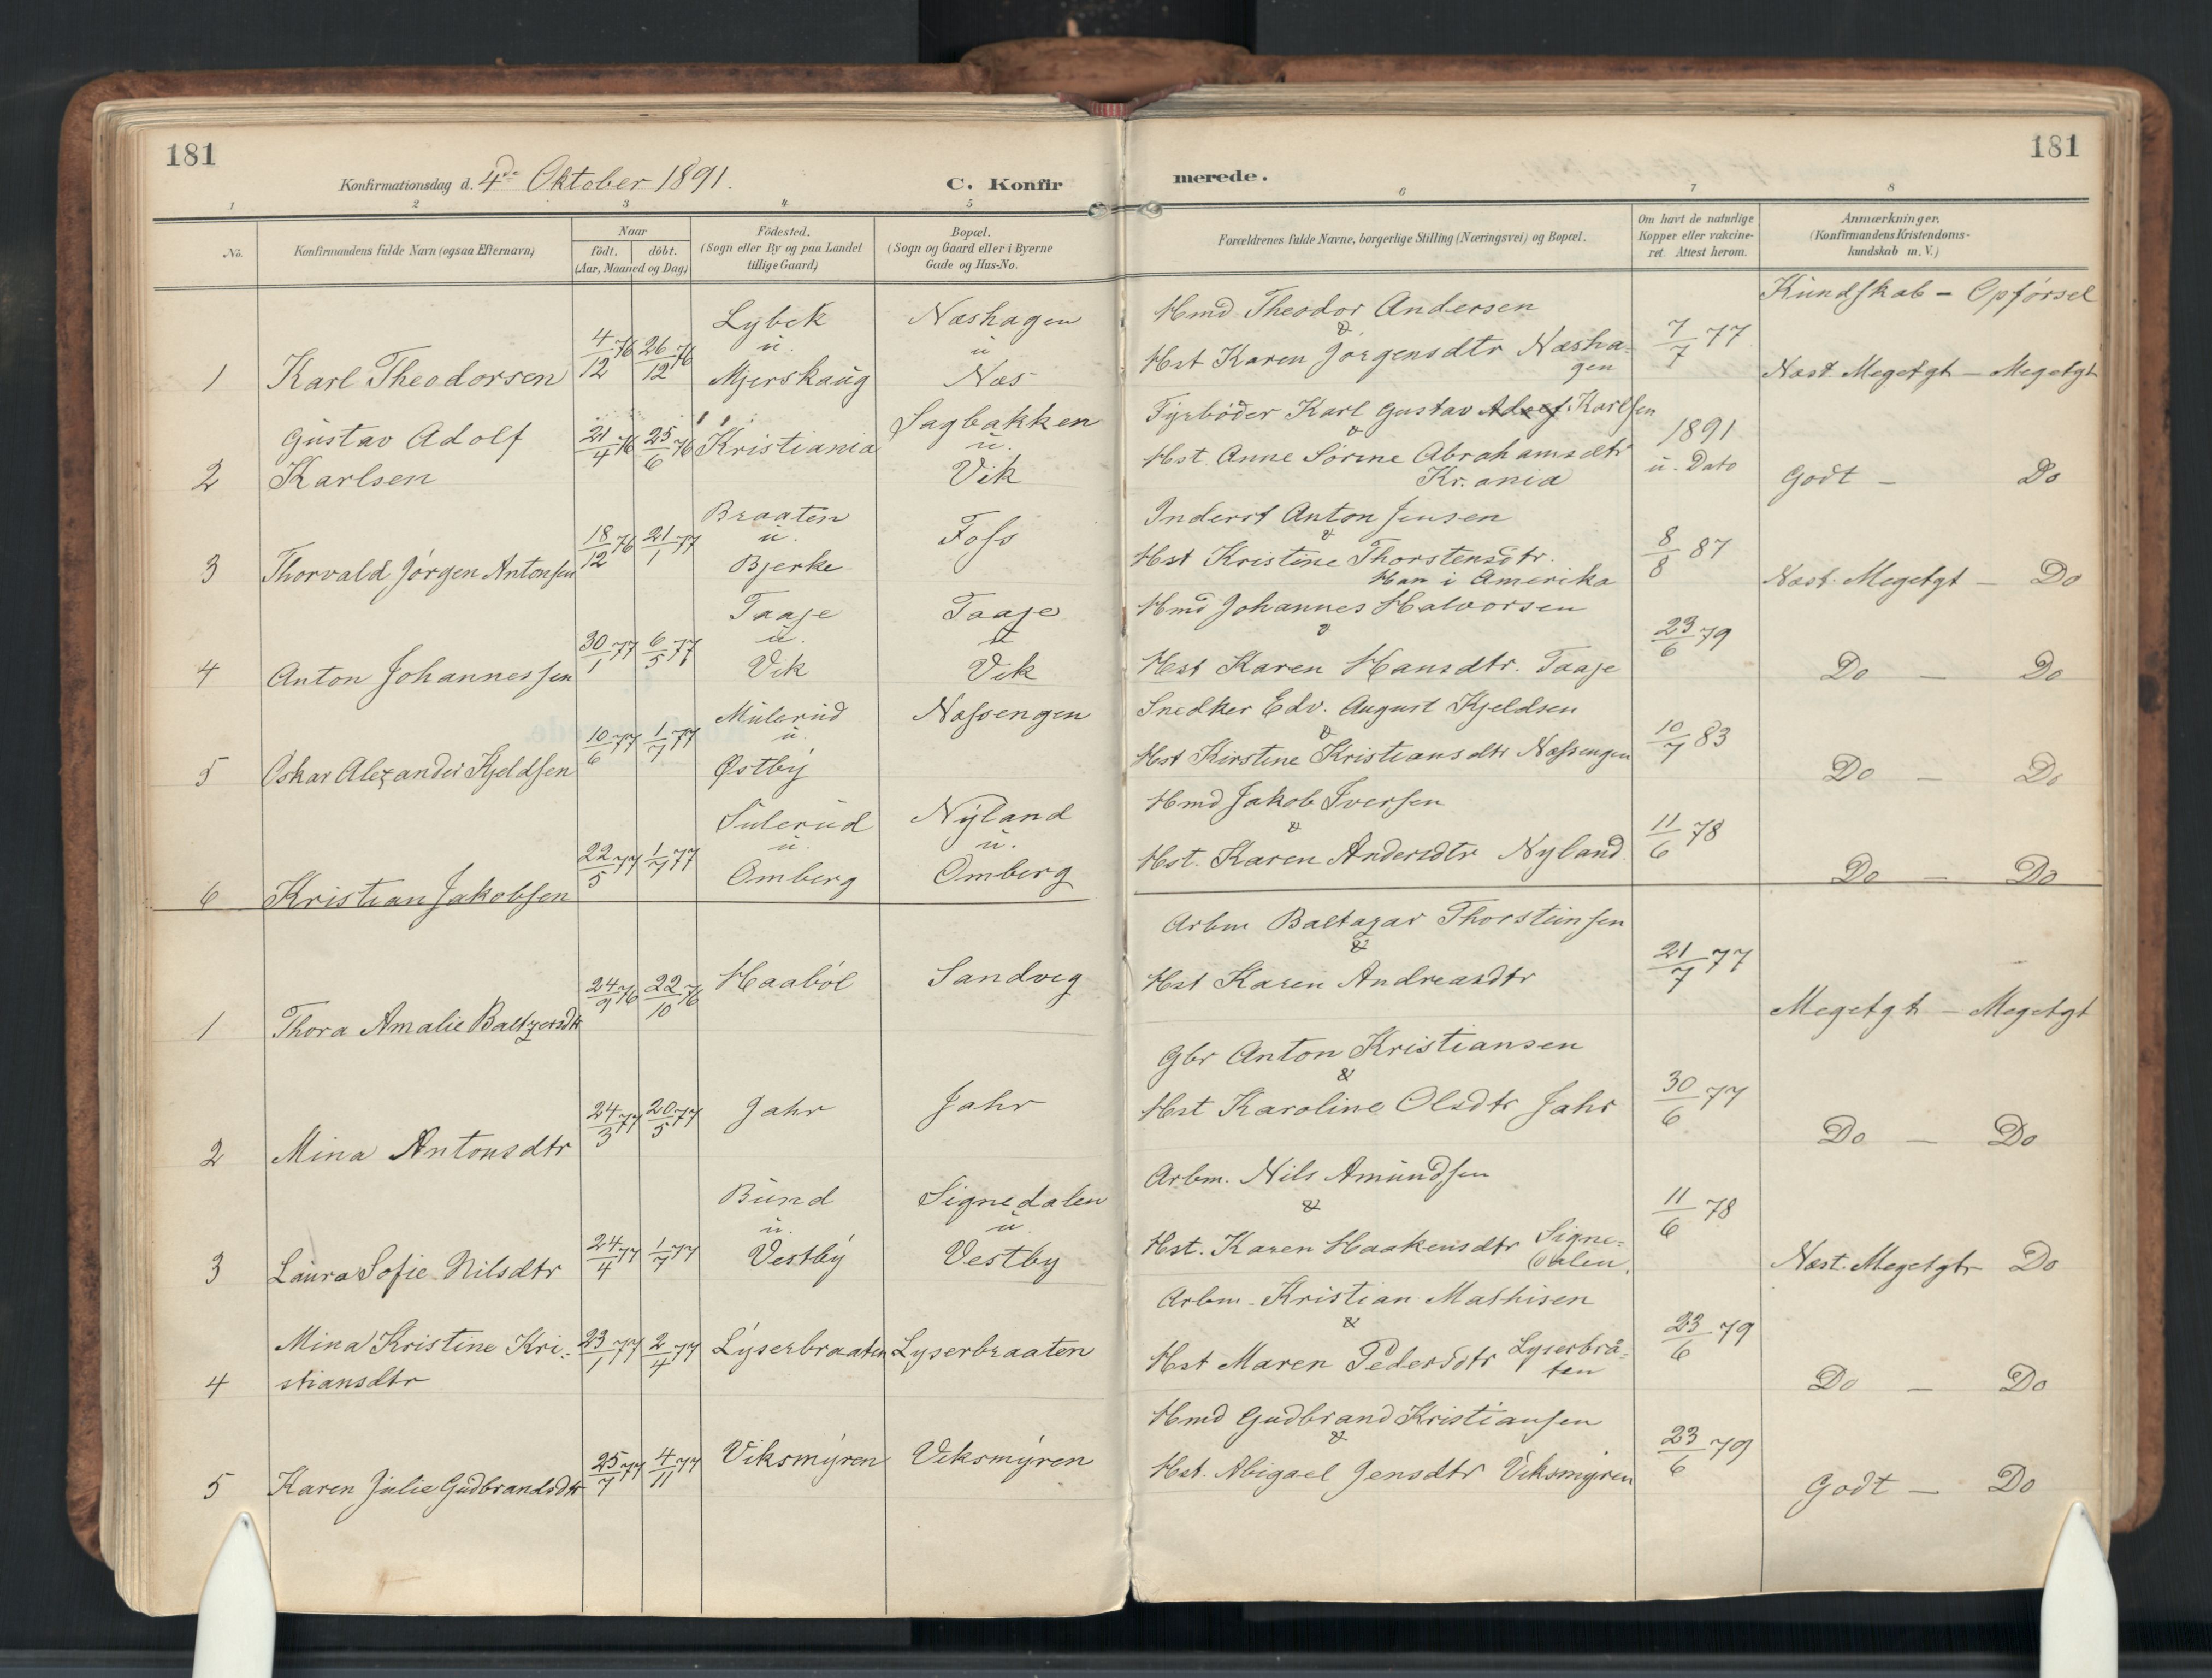 181
Konfirmationsdag d. 4de Oktober 1891.
C. Konfir
merede.
181
1
2
3
4
5
6
7
8
No.
Konfirmandens fulde Navn (ogsaa Efternavn)
Naar
födt. döbt.
(Aar, Maaned og Dag)
Födested.
(Sogn eller By og paa Landet
tillige Gaard)
Bopæl.
(Sogn og Gaard eller i Byerne
Gade og Hus-No.
Forældrenes fulde Navne, borgerlige Stilling (Næringsvei) og Bopæl.
Om havt de naturlige
Kopper eller vakcine-
ret. Attest herom.
Anmærkninger.
(Konfirmandens Kristendoms-
kundskab m. V.)
Kundskab - Opførsel
1
Karl Theodorsen
4/12 76
26/12 76
Lybek
u.
Mjerskaug
Næshagen
u
Næs
Hmd Theodor Andersen
&
Hst Karen Jörgensdtr Næsha-
gen
7/7 77
Næst. Megetgt - Megetgt
2
Gustav Adolf
Karlsen
21/4 76
25/6 76
Kristiania
Sagbakken
u.
Vik
Fyrböder Karl Gustav Adolf Karlsen
&
Hst. Anne Sörine Abrahamsdtr
Kr.ania
1891
u. Dato
Godt - Do
3
Thorvald Jörgen Antonsen
18/12 76
21/1 77
Braaten
u.
Bjerke
Foss
Inderst Anton Jensen
&
Hst Kristine Thorstensdtr.
Han i Amerika
8/8 87
Næst. Megetgt - Do
4
Anton Johannessen
30/1 77
6/5 77
Taaje
u.
Vik
Taaje
u
Vik
Hmd Johannes Halvorsen
&
Hst Karen Hansdtr. Taaje
23/6 79
Do - Do
5
Oskar Alexander Kjeldsen
10/6 77
1/7 77
Mulerud
u.
Østby
Næssengen
Snedker Edv. August Kjeldsen
&
Hst Kirstine Kristiansdtr Næssengen
10/7 83
Do - Do
6
Kristian Jakobsen
22/5 77
1/7 77
Sulerud
u.
Omberg
Nyland
u.
Omberg
Hmd Jakob Iversen
&
Hst. Karen Andersdtr Nyland
11/6 78
Do - Do
1
Thora Amalie Baltzersdtr
24/9 76
22/10 76
Haaböl
Sandvig
Arbm Baltazar Thorsteinsen
&
Hst Karen Andreasdtr
21/7 77
Megetgt - Megetgt
2
Mina Antonsdtr
24/3 77
20/5 77
Jahr
Jahr
Gbr Anton Kristiansen
&
Hst Karoline Olsdtr Jahr
30/6 77
Do - Do
3
Laura Sofie Nilsdtr
24/4 77
1/7 77
Bund
u.
Vestby
Signedalen
u.
Vestby
Arbm. Nils Amundsen
&
Hst. Karen Haakensdtr Signe-
dalen.
11/6 78
Næst. Megetgt Do
4
Mina Kristine Kri-
stiansdtr
23/1 77
2/4 77
Lyserbraaten
Lyserbraaten
Arbm. Kristian Mathisen
&
Hst Maren Pedersdtr Lyserbrå-
ten
23/6 79
Do - Do
5
Karen Julie Gudbrandsdtr
25/7 77
4/11 77
Viksmyren
Viksmyren
Hmd Gudbrand Kristiansen
&
Hst. Abigael Jensdtr Viksmyren
23/6 79
Godt - Do